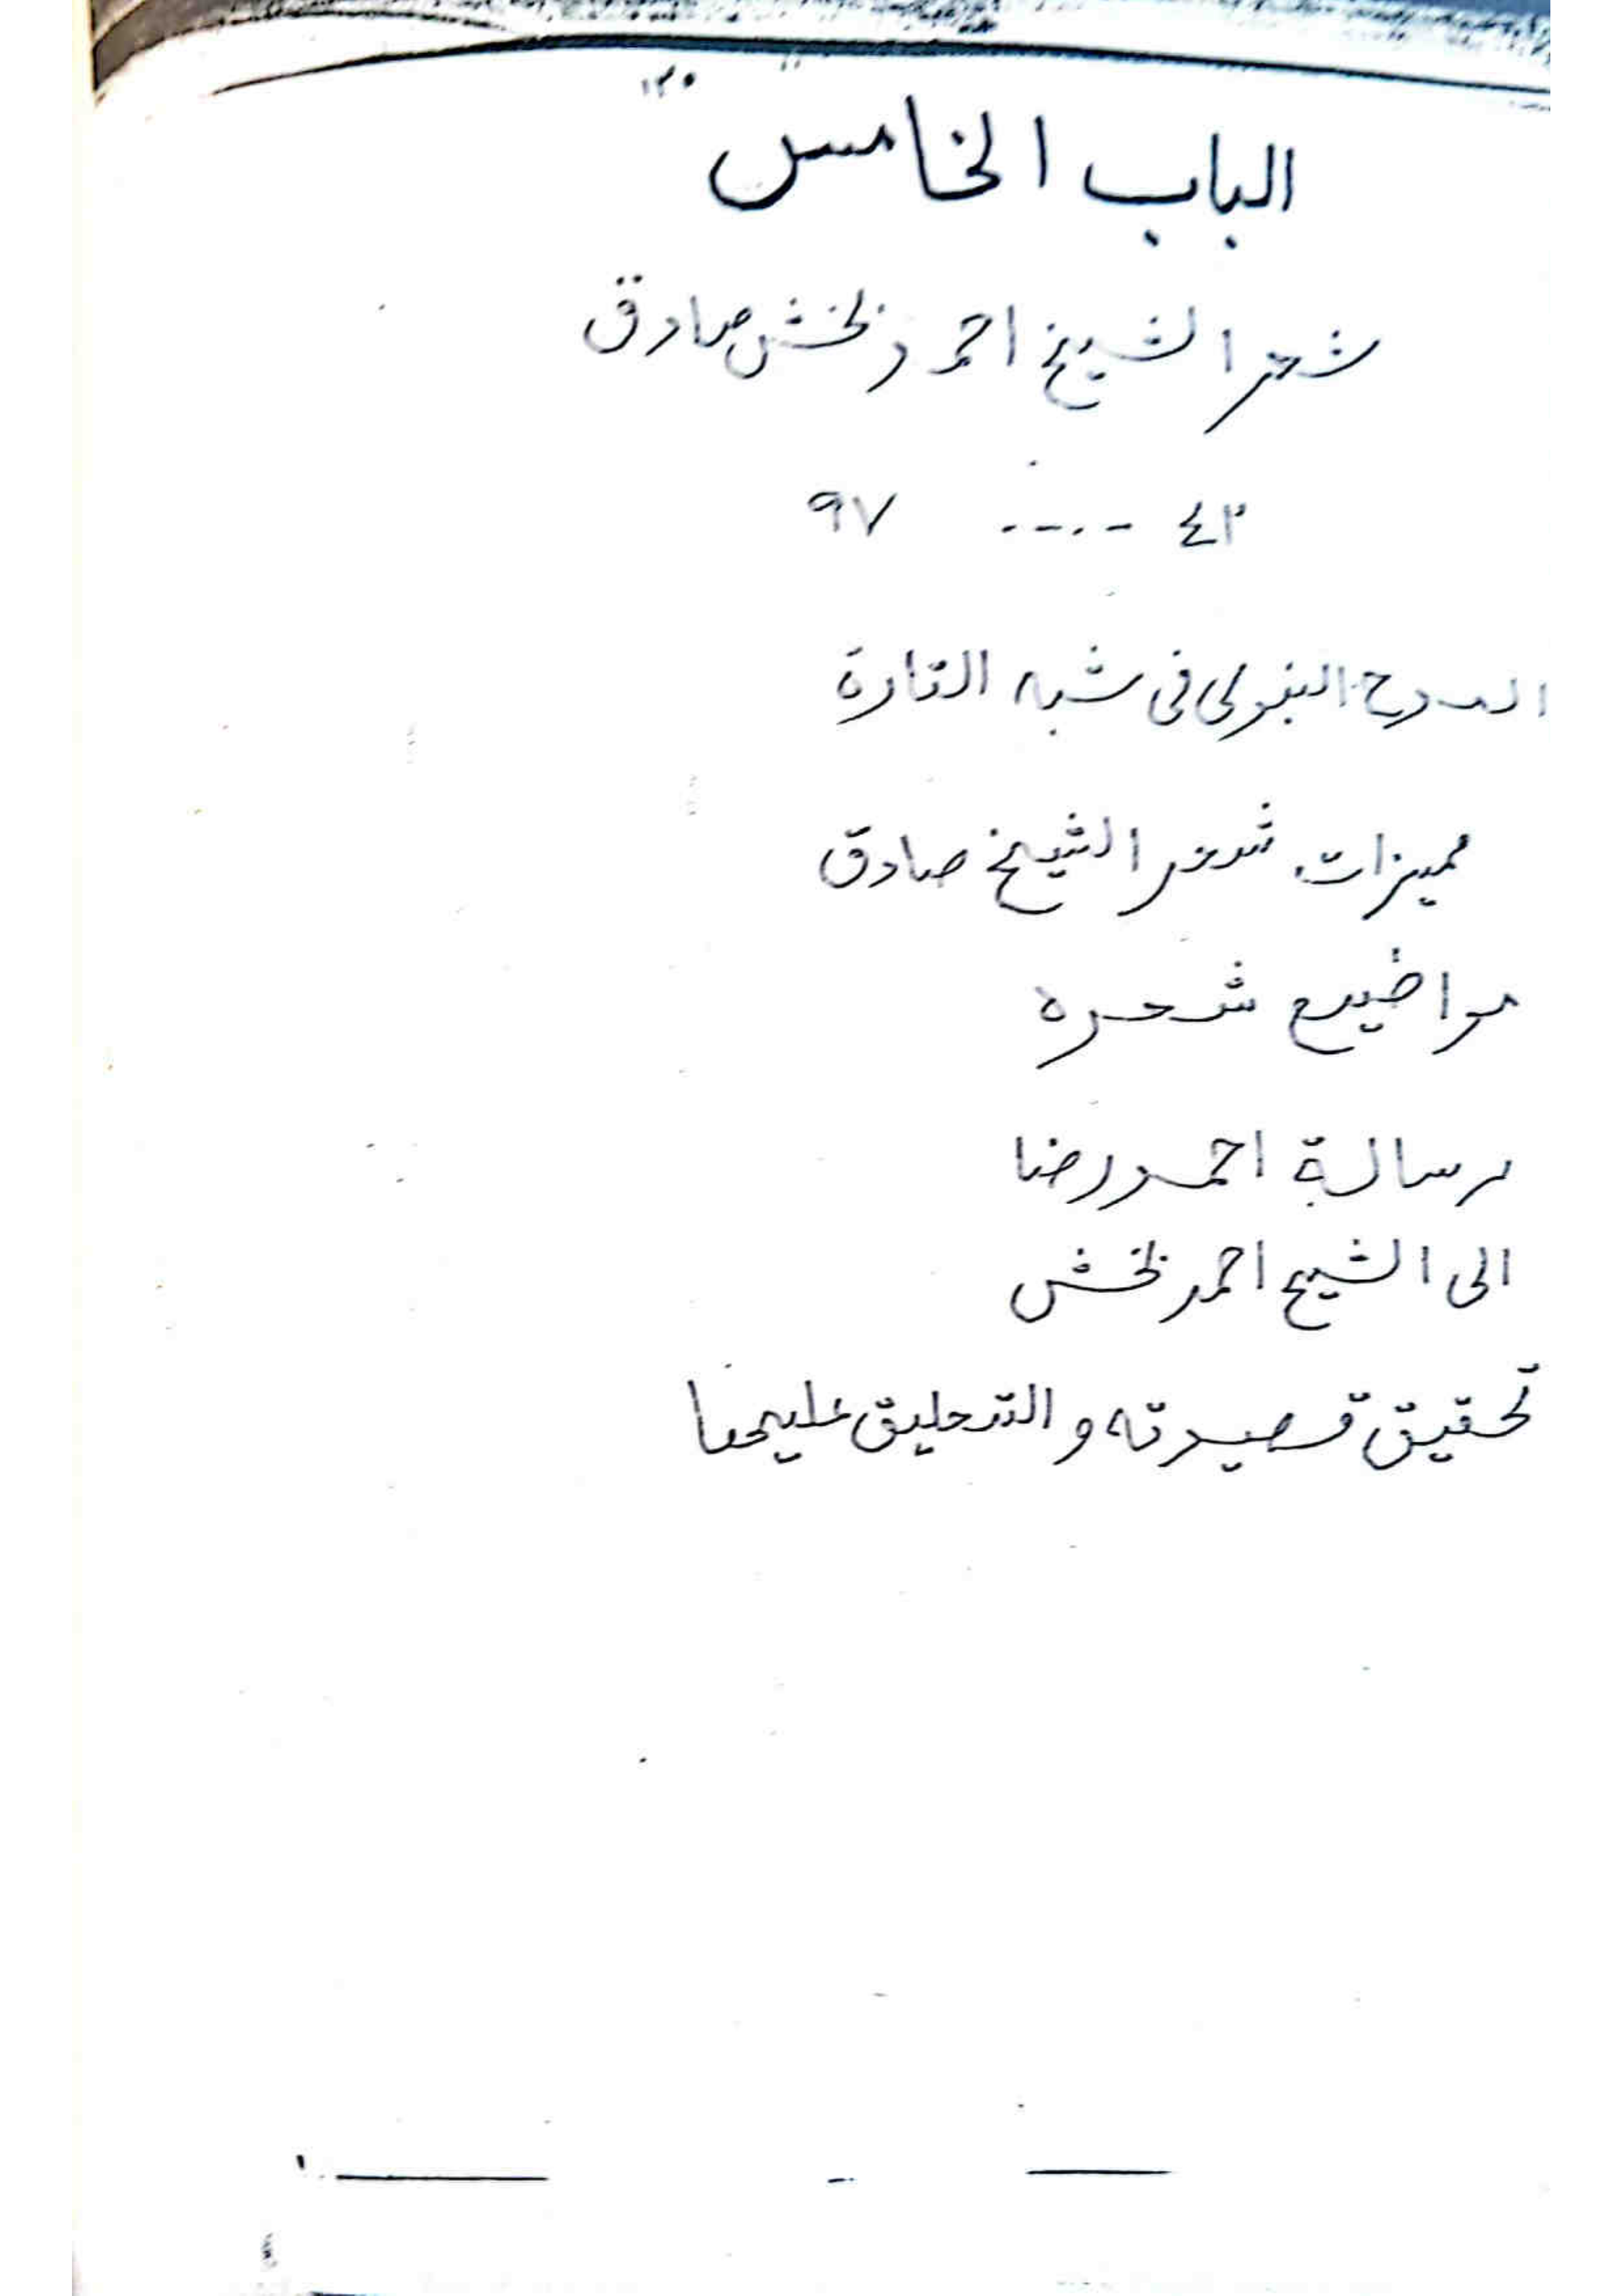 الباب الخامس
شعر الشيخ احمد بخش صادق
٤٣ ----- ٩٧
المدح النبوى فى شبه القارة
مميزات شعر الشيخ صادق
مواضيع شعره
رسالة احمد رضا
الى الشيخ احمد بخش
تحقيق قصيدته والتعليق عليها